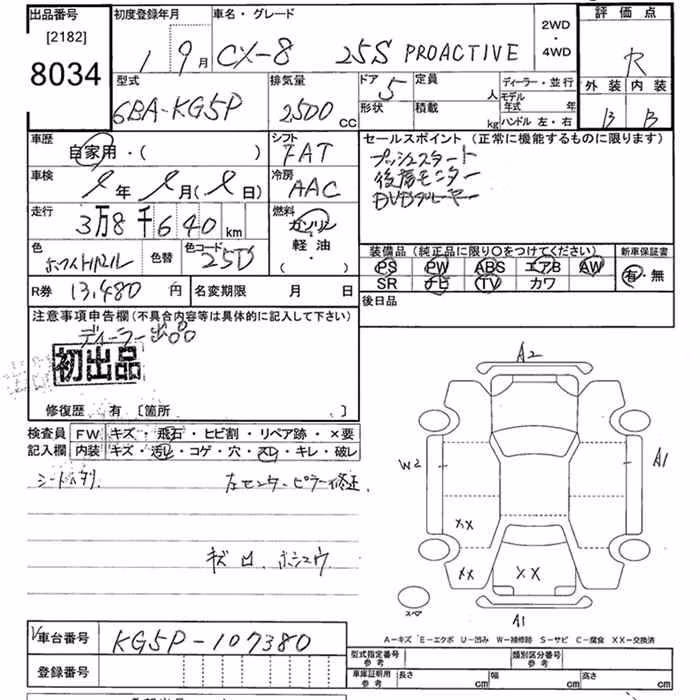 出品番号 初度登録年月 車名・グレード 2WD・4WD 評価点
[2182]
8034 1 9月 CX-8 25S PROACTIVE R
型式 排気量 ドア 定員 ディーラー・並行 外装 内装
6BA-KG5P 2500CC 5 人 モデル年式 年 B B
形状 積載 kg ハンドル 左・右
車歴 シフト セールスポイント (正常に機能するものに限ります)
自家用・( ) FAT プッシュスタート
車検 冷房 後席モニター
年 月( 日) AAC DVDプレーヤー
走行 燃料
3万8千640km ガソリン
軽油
( ・ )
色 色替 色コード 装備品(純正品に限り○をつけてください) 新車保証書
ホワイトパール 25D PS PW ABS エアB AW 有・無
SR ナビ TV カワ
R券 13,480円 名変期限 月 日 後日品
注意事項申告欄(不具合内容等は具体的に記入して下さい)
ディーラー出品
初出品
修復歴 有 [箇所 .]
検査員 FW キズ・飛石・ヒビ割・リペア跡・×要
記入欄 内装 キズ・汚レ・コゲ・穴・スレ・キレ・破レ
シートヘタリ 左センターピラー修正.
キズ 凹. ホシュウ
A2
W2 A1
XX
XX XX
スペア A1
A-キズ E-エクボ U-凹み W-補修跡 S-サビ C-腐食 XX-交換済
車台番号 KG5P-107380
型式指定番号 参考 類別区分番号 参考
登録番号 車庫証明用 参考 長さ cm 幅 cm 高さ cm